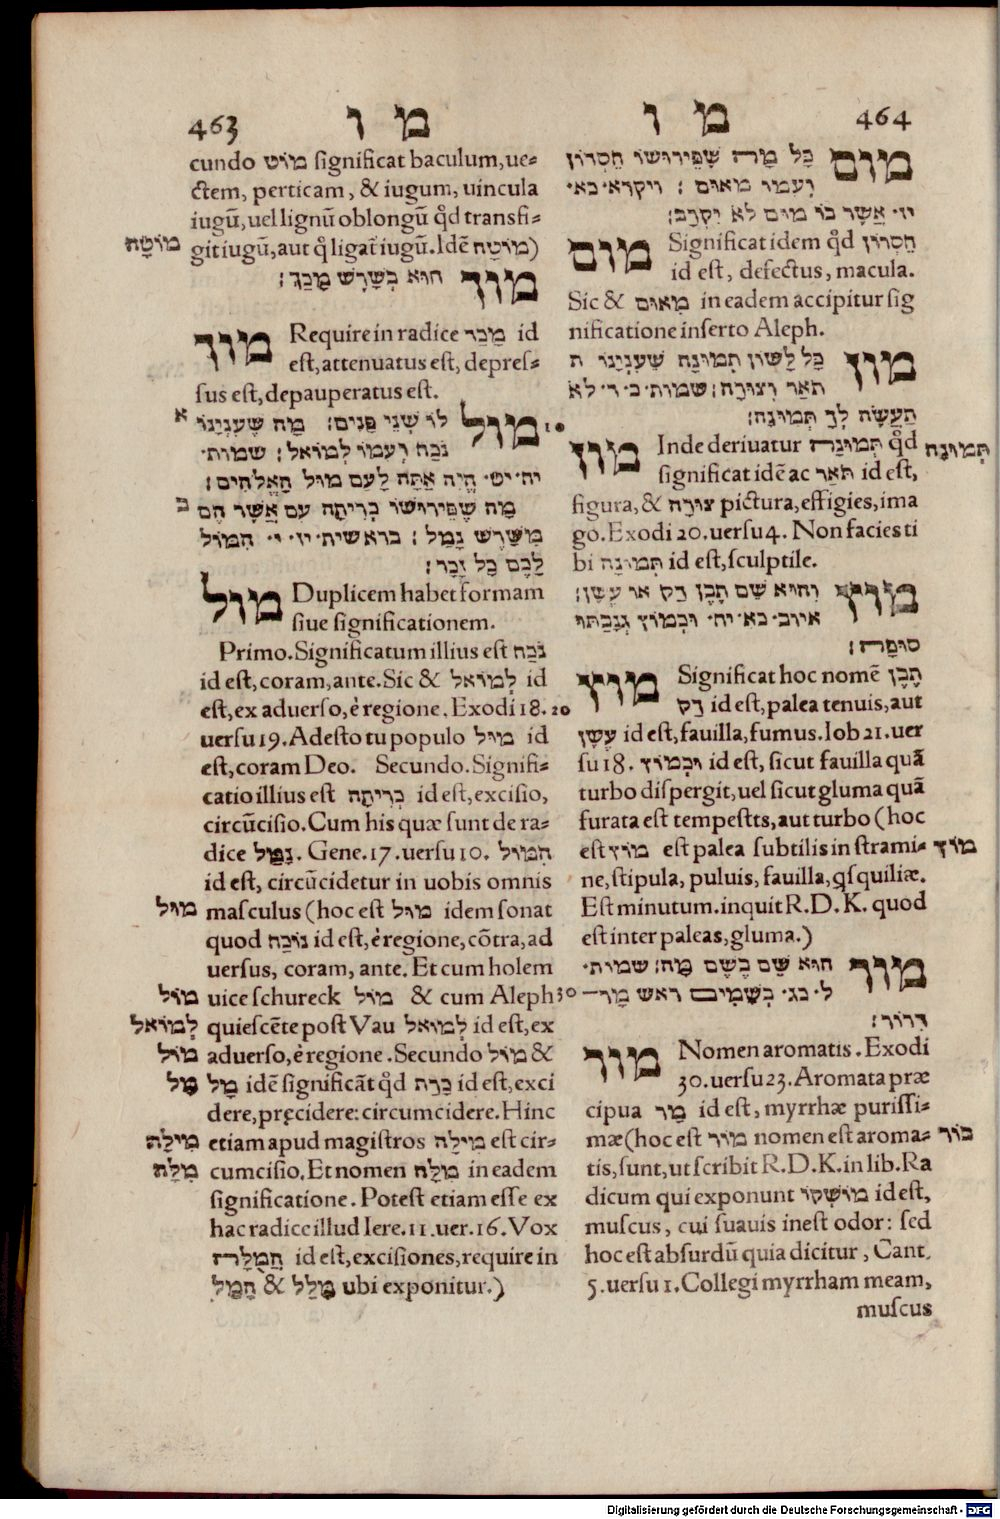 463 מ ו
cundo מוֹט significat baculum, ue⸗
ctem, perticam, & iugum, uincula
iugũ, uel lignũ oblongũ q̊d transfi⸗
מוֹטָה git iugũ, aut q̊ ligat̃ iugũ. Idẽ מוֹטָה)
מוך הוא בְשָׁרָשׁ מָכַךְ׃
מוך Require in radice מָכַר id
est, attenuatus est, depres⸗
sus est, depauperatus est.
א מול לוֹ שְׁנֵי פַנִים׃ מַה שֶׁעִנְיָנוֹ
נֹכַח וְעִמוֹ לְמוֹאל׃ שמות·
יה· יט· הֱיֵה אַתָּה לָעָם מוּל הָאֱלֹהִים׃
ב מַה שֶׁפֵּירוּשׁוֹ כְּרִיתָה עִם אֲשֶׁר הֵם
מִשֹּׁרֶשׁ נָמַל׃ בראשית· יז· י· הִמּוֹל
לָכֶם כָּל זָכָר׃
מול Duplicem habet formam
siue significationem.
Primo. Significatum illius est נֹכַח
id est, coram, ante. Sic & לְמוֹאל id
est, ex aduerso, è regione. Exodi 18. 20
uersu 19. Adesto tu populo מוּל id
est, coram Deo. Secundo. Signifi⸗
catio illius est כְּרִיתָה id est, excisio,
circũcisio. Cum his quæ sunt de ra⸗
dice נָמַל. Gene. 17. uersu 10. הִמּוֹל
id est, circũcidetur in uobis omnis
מוּל masculus (hoc est מוּל idem sonat
quod נוֹכַח id est, è regione, cõtra, ad
uersus, coram, ante. Et cum holem
מוֹל uice schureck מוֹל & cum Aleph 30
לְמוֹאל quiescẽte post Vau לְמוֹאל id est, ex
מוֹל aduerso, è regione. Secundo מוֹל &
מָל מָל idẽ significãt q̊d כָּרַת id est, exci
dere, pręcidere: circumcidere. Hinc
מִילָה etiam apud magistros מִילָה est cir⸗
מִלָה cumcisio. Et nomen מִלָה in eadem
significatione. Potest etiam esse ex
hac radice illud Iere. 11. uer. 16. Vox
הֲמֻלָּה id est, excisiones, require in
הָמַל & מָלַל ubi exponitur.)
מ ו 464
מום כָּל מַה שֶׁפֵּירוּשׁוֹ חֶסְרוֹן
וְעִמוֹ מאוּם׃ ויקרא· כא·
יז· אֲשֶׁר בּוֹ מוּם לֹא יִקְרַב׃
מום Significat idem q̊d חֶסְרוֹן
id est, defectus, macula.
Sic & מְאוּם in eadem accipitur sig
nificatione inserto Aleph.
מון כָּל לְשׁוֹן תְּמוּנָה שֶׁעִנְיָנוֹ ת
תֹאַר וְצוּרָה׃ שמות· כ· ד· לֹא
תַעֲשֶׂה לְךָ תְּמוּנָה׃
מון Inde deriuatur תְּמוּנָה q̊d תְּמוּנָה
significat idẽ ac תֹאַר id est,
figura, & צוּרָה pictura, effigies, ima
go. Exodi 20. uersu 4. Non facies ti
bi תְּמוּנָה id est, sculptile.
מוץ וְהוּא שֵׁם תֶּבֶן דַּק אוֹ עָשָׁן׃
איוב· כא· יח· וּכְמוֹץ גְּנָבַתּוּ
סוּפָה׃
מוץ Significat hoc nomẽ תֶּבֶן
דַּק id est, palea tenuis, aut
עָשָׁן id est, fauilla, fumus. Iob 21. uer
su 18. וּכְמוֹץ id est, sicut fauilla quã
turbo dispergit, uel sicut gluma quã
furata est tempestts, aut turbo (hoc
est מוֹץ est palea subtilis in strami⸗ מוֹץ
ne, stipula, puluis, fauilla, q̃squiliæ.
Est minutum. inquit R. D. K. quod
est inter paleas, gluma.)
מור הוּא שֵׁם בֹּשֶׂם מַה׃ שמות·
ל· כג· בְּשָׂמִים ראש מָר־
דְּרוֹר׃
מור Nomen aromatis. Exodi
30. uersu 23. Aromata præ
cipua מָר id est, myrrhæ purissi⸗
mæ (hoc est מוֹר nomen est aroma⸗ מוֹר
tis, sunt, ut scribit R. D. K. in lib. Ra
dicum qui exponunt מוֹשְׁקוֹ id est,
muscus, cui suauis inest odor: sed
hoc est absurdũ quia dicitur, Cant.
5. uersu 1. Collegi myrrham meam,
muscus
Digitalisierung gefördert durch die Deutsche Forschungsgemeinschaft - DFG